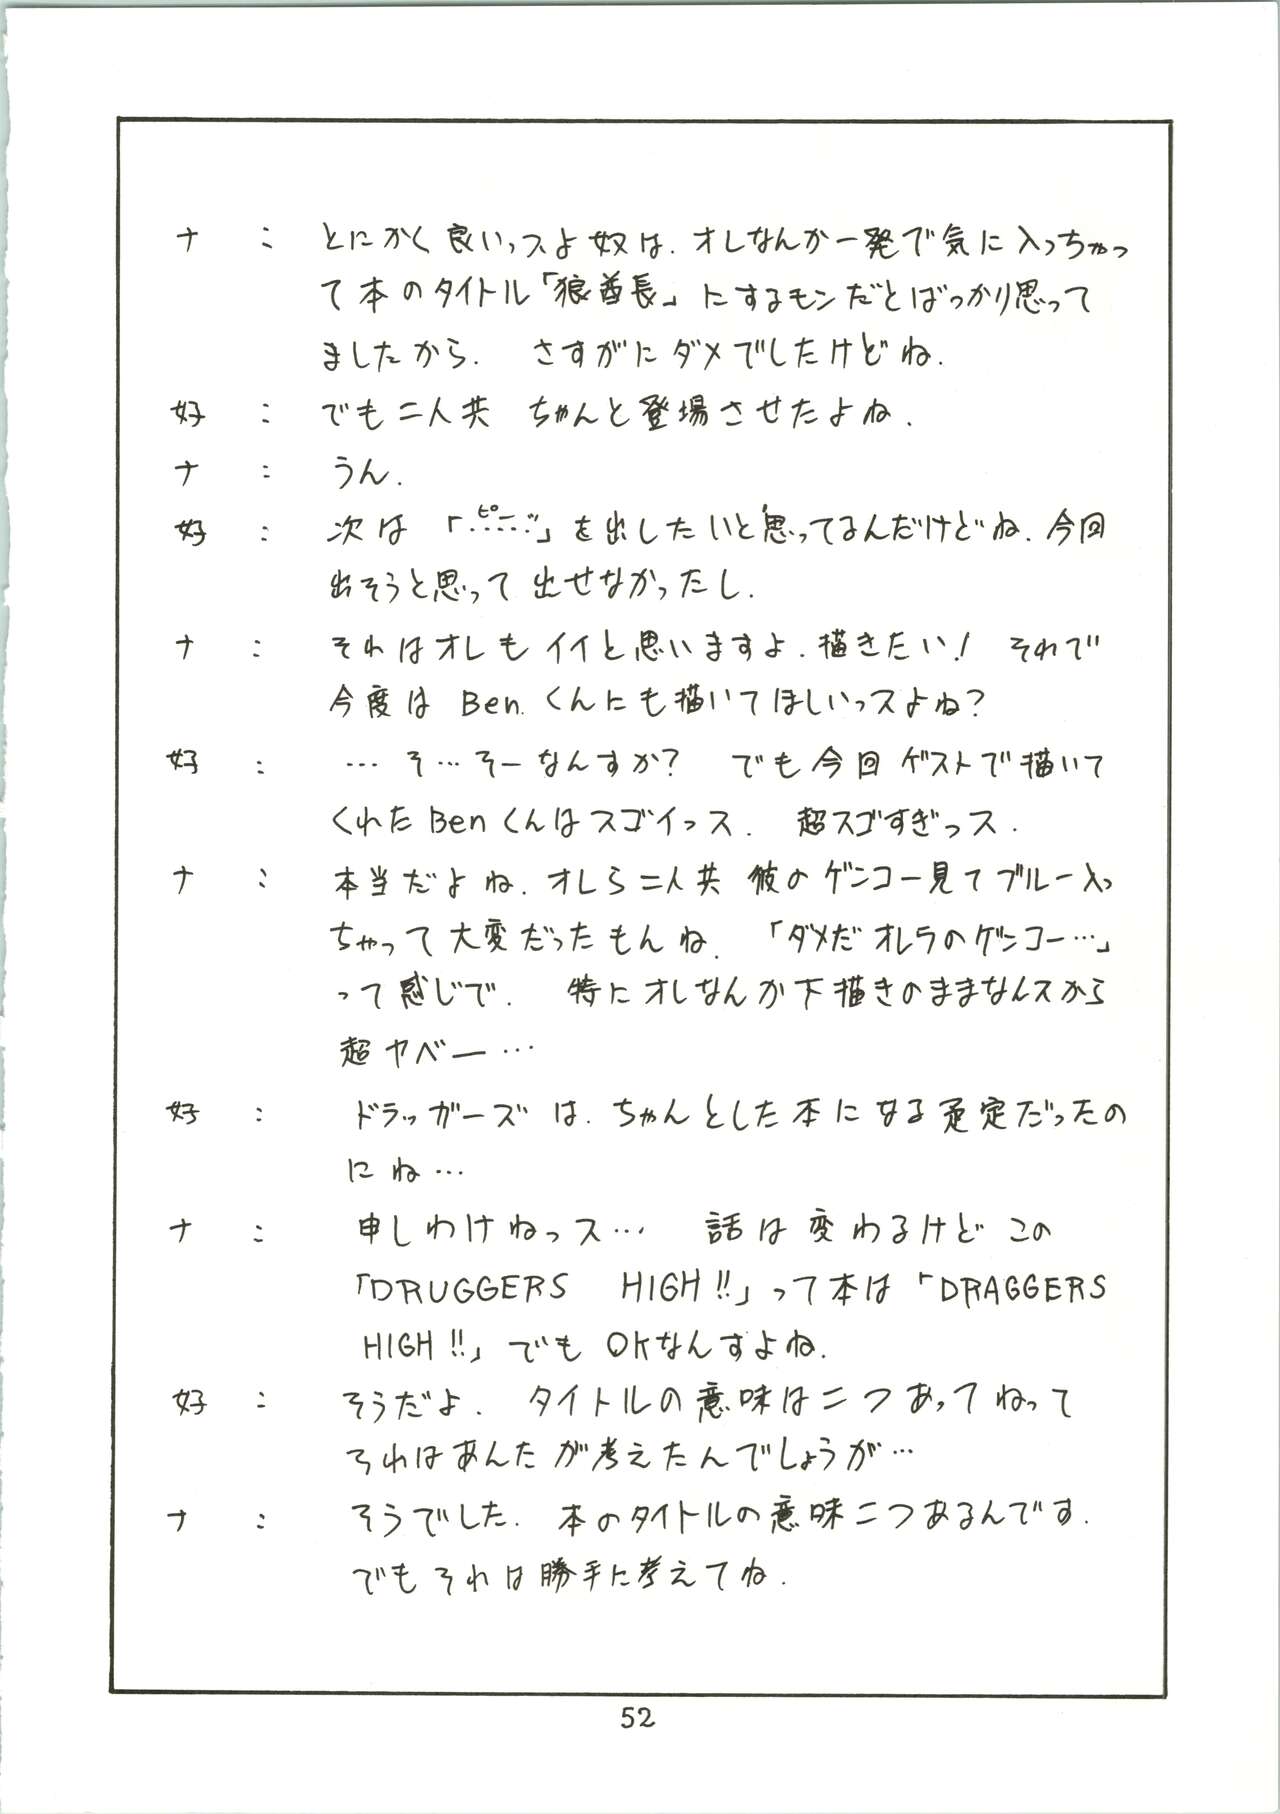 ナ : とにかく良いっスよ奴は. オレなんか一発で気に入っちゃっ
て本のタイトル「狼酋長」にするモンだとばっかり思って
ましたから. さすがにダメでしたけどね.
好 : でも二人共 ちゃんと登場させたよね.
ナ : うん.
好 : 次は「・ピー・・・・」を出したいと思ってるんだけどね. 今回
出そうと思って出せなかったし.
ナ : それはオレもイイと思いますよ. 描きたい! それで
今度は Ben. くんにも描いてほしいっスよね?
好 : …そ…そーなんすか? でも今回ゲストで描いて
くれたBenくんはスゴイっス. 超スゴすぎっス.
ナ : 本当だよね. オレら二人共 彼のゲンコー見てブルー入っ
ちゃって大変だったもんね. 「ダメだ オレラのゲンコー…」
って感じで. 特にオレなんか下描きのままなんスから
超ヤベー…
好 : ドラッガーズは. ちゃんとした本になる予定だったの
にね…
ナ : 申しわけねっス… 話は変わるけど この
「DRUGGERS HIGH!!」って本は「DRAGGERS
HIGH!!」でも OKなんすよね.
好 : そうだよ. タイトルの意味は二つあってねって
それはあんたが考えたんでしょうが…
ナ : そうでした. 本のタイトルの意味二つあるんです.
でもそれは勝手に考えてね.
52